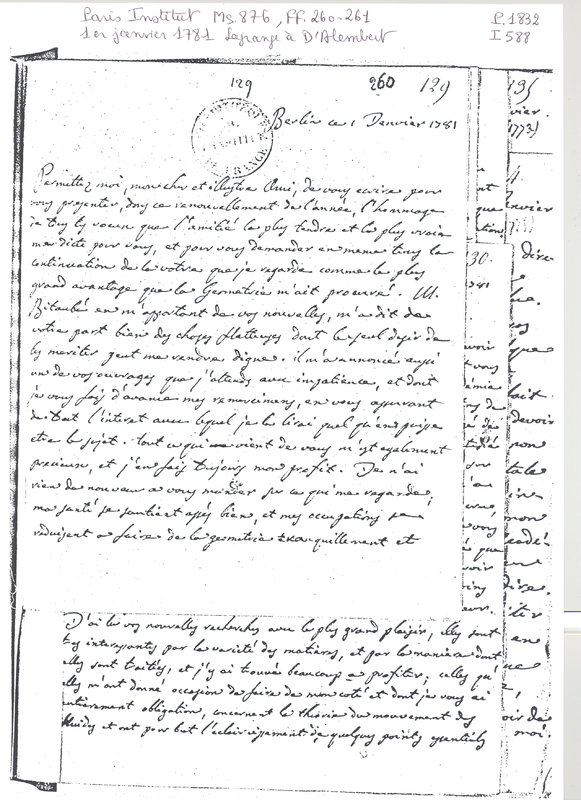 Paris Institut Ms. 876, ff. 260-261
P. 1832
1er janvier 1781 Lagrange à D'Alembert
I 588
129
260
129
Berlin ce 1 Janvier 1781
Permettez moi, mon cher et illustre Ami, de vous ecrire pour
vous presenter, dans ce renouvellement de l'année, l'hommage
de tous les voeux que l'amitié la plus tendre et la plus vraie
me dicte pour vous, et pour vous demander en meme tems la
continuation de la votre que je regarde comme le plus
grand avantage que la Geometrie m'ait procuré. M.
Bitaubé en m'apportant de vos nouvelles, m'a dit de
votre part bien des choses flatteuses dont le seul desir de
les meriter peut me rendre digne. il m'a annoncé aussi
un de vos ouvrages que j'attends avec impatience, et dont
je vous fais d'avance mes remercimens, en vous assurant
de tout l'interet avec lequel je le lirai quel qu'en puisse
etre le sujet. tout ce qui vient de vous m'est egalement
precieux, et j'en fais toujours mon profit. Je n'ai
rien de nouveau a vous mander sur ce qui me regarde;
ma santé se soutient assés bien, et mes occupations se
reduisent a faire de la geometrie tranquillement et
J'ai lu vos nouvelles recherches avec le plus grand plaisir, elles sont
tres interessantes par la varieté des matieres, et par la maniere dont
elles sont traitées, et j'y ai trouvé beaucoup a profiter; celles qui
m'ont donné occasion de faire de mon coté et dont je vous ai
entierement obligation, concernent la théorie du mouvement des
fluides et ont pour but l'eclaircissement de quelques points essentiels